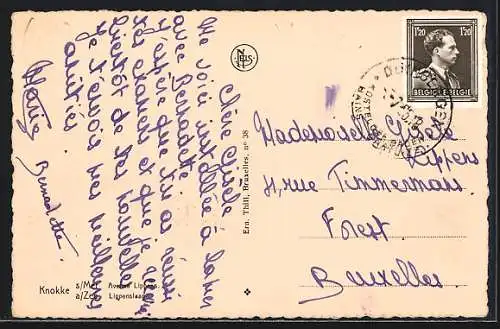 Chère Gisèle,
Me voici installée à
avec Bernadette
J'espère que tu as réussi
tes examens et que je
bientôt de tes nouvelles
Je t'envois mes meilleures
amitiés.
Bernadette.
Knokke s/Mer Avenue Lippens.
a/Zee Lippenslaan.
Ern. Thill, Bruxelles, nº 38
NELS
1F20 1F20
BELGIQUE-BELGIE
Mademoiselle Gisèle
Kippens
rue Timmermans
Forest
Bruxelles.